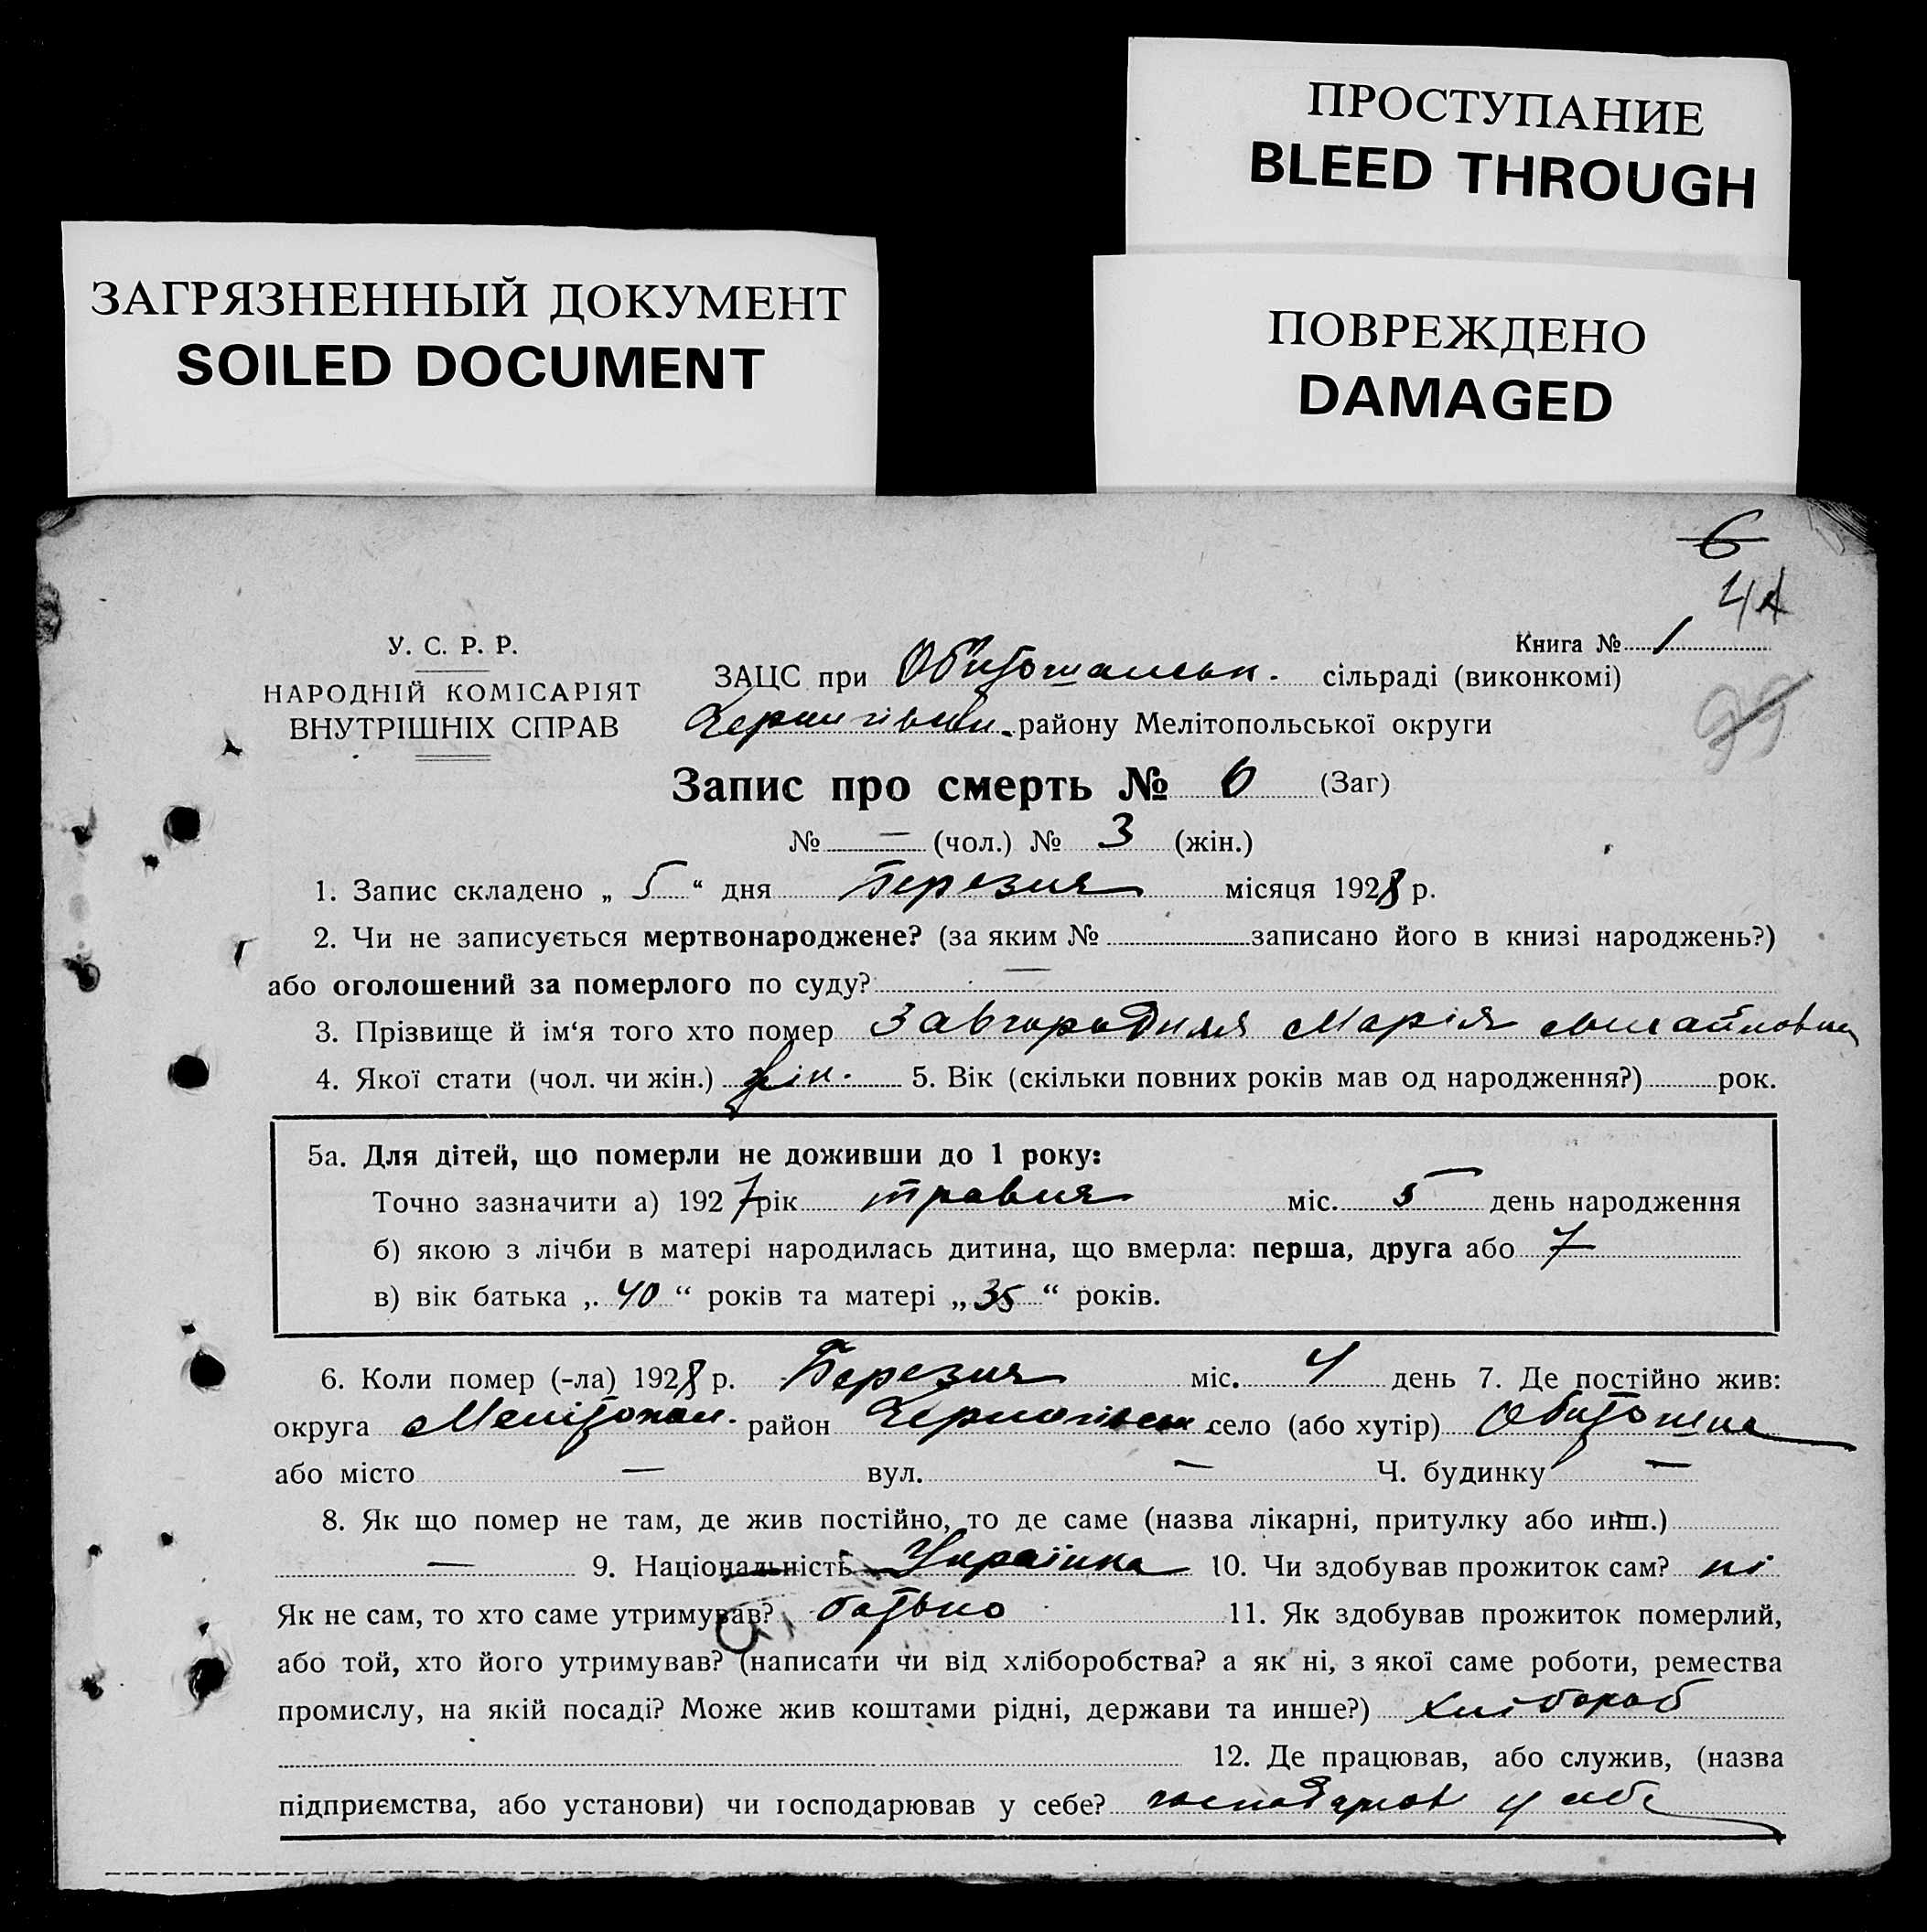 ПРОСТУПАНИЕ
BLEED THROUGH
ЗАГРЯЗНЕННЫЙ ДОКУМЕНТ
SOILED DOCUMENT
ПОВРЕЖДЕНО
DAMAGED
6
У. С. Р. Р.
НАРОДНІЙ КОМІСАРІЯТ
ВНУТРІШНІХ СПРАВ
Книга № 1
99
ЗАЦС при Обиточанськ. сільраді (виконкомі)
Чернигівськ. району Мелітопольської округи
Запис про смерть № 6 (Заг)
№ — (чол.) № 3 (жін.)
1. Запис складено „ 5 “ дня Березня місяця 1928 р.
2. Чи не записується мертвонароджене? (за яким № записано його в книзі народжень?)
або оголошений за померлого по суду? —
3. Прізвище й ім‘я того хто помер Завгородняя Марія Михайловна
4. Якої стати (чол. чи жін.) жін. 5. Вік (скільки повних років мав од народження?) рок.
5а. Для дітей, що померли не доживши до 1 року:
Точно зазначити а) 1927 рік травня міс. 5 день народження
б) якою з лічби в матері народилась дитина, що вмерла: перша, друга або 7
в) вік батька „ 40 “ років та матері „ 35 “ років.
6. Коли помер (-ла) 1928 р. Березня міс. 4 день 7. Де постійно жив:
округа Мелітопол. район Чернигівськ село (або хутір) Обиточна
або місто — вул. — Ч. будинку —
8. Як що помер не там, де жив постійно, то де саме (назва лікарні, притулку або инш.)
— 9. Національність Українка 10. Чи здобував прожиток сам? ні
Як не сам, то хто саме утримував? батько 11. Як здобував прожиток померлий,
або той, хто його утримував? (написати чи від хліборобства? а як ні, з якої саме роботи, ремества
промислу, на якій посаді? Може жив коштами рідні, держави та инше?) хлібороб
12. Де працював, або служив, (назва
підприємства, або установи) чи господарював у себе? господарюв у себе